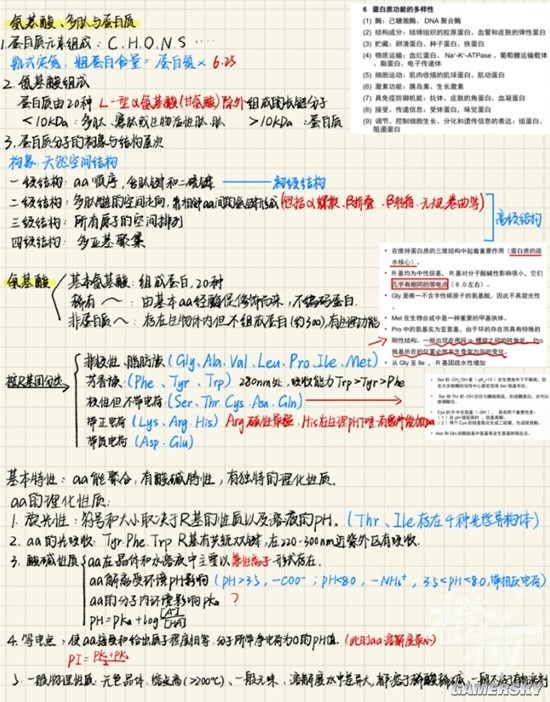 氨基酸、多肽与蛋白质
1.蛋白质元素组成：C.H.O.N.S ……
凯式定氮：粗蛋白含量=蛋白氮× 6.25
2. 氨基酸组成
蛋白质由20种L-型α氨基酸(甘氨酸)除外组成的长链分子
<10kDa：多肽、寡肽或生物活性肽 >10kDa：蛋白质
3.蛋白质分子的构象与结构层次
构象：天然空间结构
一级结构：aa顺序，含肽键和二硫键 —— 初级结构
二级结构：多肽链的空间走向，靠相邻aa间的氢键形成(包括α螺旋、β折叠、β转角、无规卷曲等)
三级结构：所有原子的空间排列
四级结构：多亚基聚集
高级结构
6 蛋白质功能的多样性
(1) 酶：己糖激酶、DNA 聚合酶
(2) 结构成分：结缔组织的胶原蛋白、血管和皮肤的弹性蛋白
(3) 贮藏：卵清蛋白、种子蛋白、铁蛋白
(4) 物质运输：血红蛋白、Na⁺-K⁺-ATPase、葡萄糖运输载体、脂蛋白、电子传递体
(5) 细胞运动：肌肉收缩的肌球蛋白、肌动蛋白
(6) 激素功能：胰岛素、生长激素
(7) 具免疫防御机能：抗体、皮肤的角蛋白、血凝蛋白
(8) 接受、传递信息：受体蛋白，味觉蛋白
(9) 调节、控制细胞生长、分化和遗传信息的表达：组蛋白、阻遏蛋白
氨基酸
基本氨基酸：组成蛋白，20种
稀有~：由基本aa经酶促修饰而来，不编码蛋白.
非蛋白质~：存在生物体内但不组成蛋白(约300)，有生理功能
• 在维持蛋白质的三维结构中起着重要作用（蛋白质的疏水核心）。
• R 基均为中性烷基，R 基对分子酸碱性影响很小，它们几乎有相同的等电点（6.0左右）。
• Gly 是唯一不含手性碳原子的氨基酸，因此不具旋光性。
• Met 在生物合成中是一种重要的甲基供体。
• Pro 中的亚氨基
• 从 Gly 至 Ile，R 基团疏水性增加
按R基团分类
非极性、脂肪族(Gly、Ala、Val、Leu、Pro、Ile、Met)
芳香族(Phe、Tyr、Trp) 280nm处，吸收能力Trp>Tyr>Phe
极性但不带电荷(Ser、Thr、Cys、Asn、Gln)
带正电荷(Lys、Arg、His) Arg碱性最强.
带负电荷(Asp、Glu)
基本特性：aa能聚合，有酸碱特性，有独特的理化性质.
aa的理化性质：
1. 旋光性：符号和大小取决于R基的性质以及溶液的pH。(Thr、Ile存在4种光学异构体)
2. aa的光吸收：Tyr、Phe、Trp R基有共轭双键，在220-300nm近紫外区有吸收.
3. 酸碱性质
aa在晶体和水溶液中主要以兼性离子形式存在.
aa解离受环境pH影响 (pH>3.5，-COO⁻；pH<8.0，-NH₃⁺，3.5<pH<8.0，带相反电荷)
aa的分子内环境影响pKa ?
pH=pKa+log [A⁻]/[HA]
4. 等电点：使aa接受和给出质子程度相等，分子所带净电荷为0的pH值. (此时aa溶解度最小)
PI=
5. 一般物理性质：无色晶体，熔点高(>200℃)、一般无味、溶解度水中差异大，
GAMERSKY